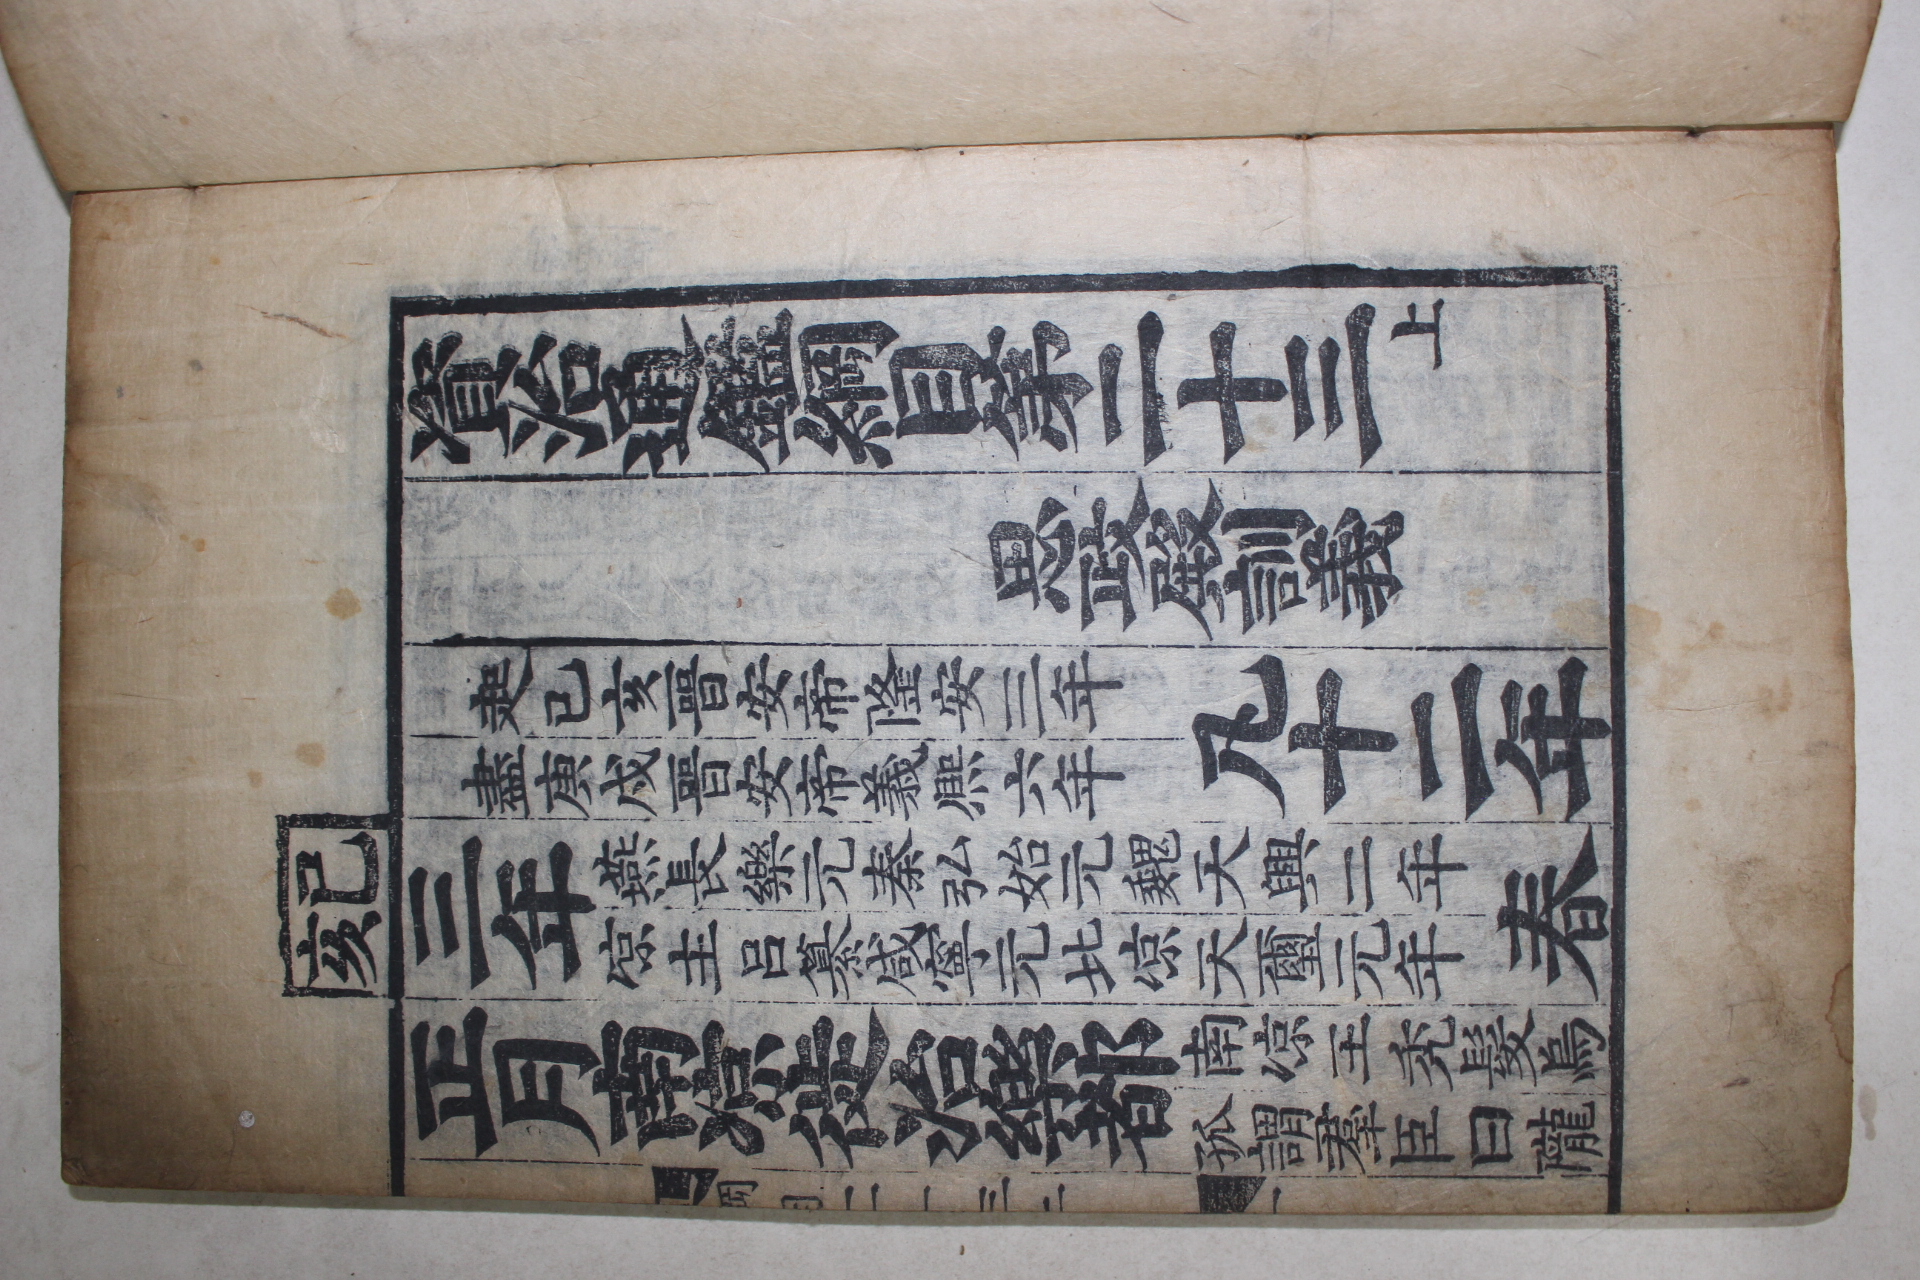 資治通鑑綱目第二十三上
思政殿訓義
起己亥晉安帝隆安三年
盡庚戌晉安帝義熙六年
凡十二年
己亥
三年
燕長樂元秦弘始元魏天興二年
涼主呂纂咸寧元北涼天璽元年
春
正月南涼徙治樂都
南涼王禿髮烏
孤謂羣臣曰隴